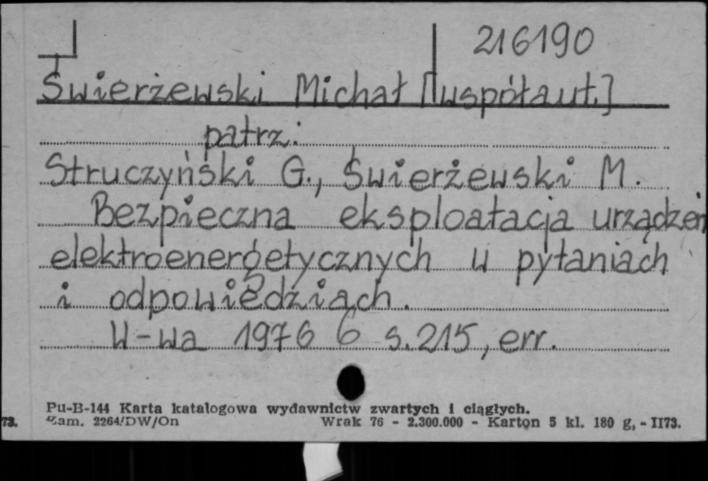 216190
Świerżewski Michał [współaut.]
patrz:
Struczyński G., Świerżewski M.
Bezpieczna eksploatacja urządzeń
elektroenergetycznych w pytaniach
i odpowiedziach.
W-wa 1976 8 s. 215, err.
Pu-B-144 Karta katalogowa wydawnictw zwartych i ciągłych.
73. Zam. 2264/DW/On Wrak 76 - 2.300.000 - Karton 5 kl. 180 g, - II73.